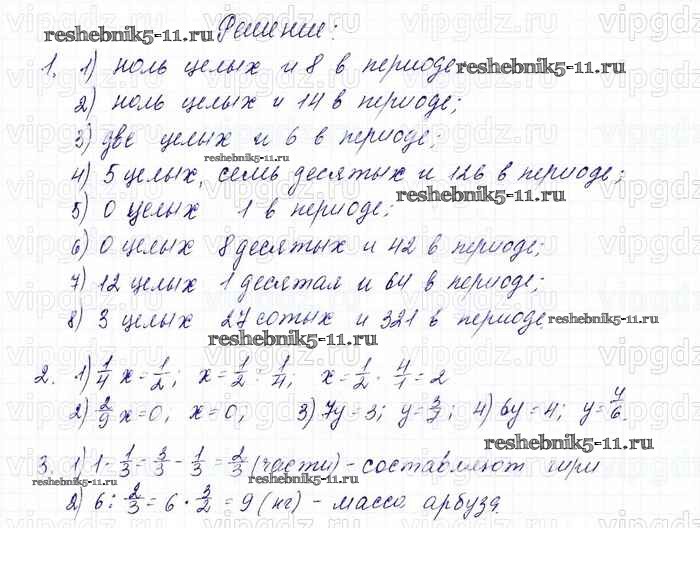 Решение:
reshebnik5-11.ru
1. 1) ноль целых и 8 в периоде
reshebnik5-11.ru
2) ноль целых и 14 в периоде;
3) две целых и 6 в периоде;
reshebnik5-11.ru
4) 5 целых, семь десятых и 126 в периоде;
reshebnik5-11.ru
5) 0 целых 1 в периоде;
6) 0 целых 8 десятых и 42 в периоде;
7) 12 целых 1 десятая и 64 в периоде;
8) 3 целых 27 сотых и 321 в периоде.
reshebnik5-11.ru
reshebnik5-11.ru
2. 1) 1/4 x = 1/2; x = 1/2 : 1/4; x = 1/2 · 4/1 = 2
2) 2/9 x = 0; x = 0; 3) 7y = 3; y = 3/7; 4) 6y = 4; y = 4/6.
reshebnik5-11.ru
3. 1) 1 - 1/3 = 3/3 - 1/3 = 2/3 (части) - составляют гири
reshebnik5-11.ru
2) 6 : 2/3 = 6 · 3/2 = 9 (кг) - масса арбуза.
reshebnik5-11.ru
vipgdz.ru